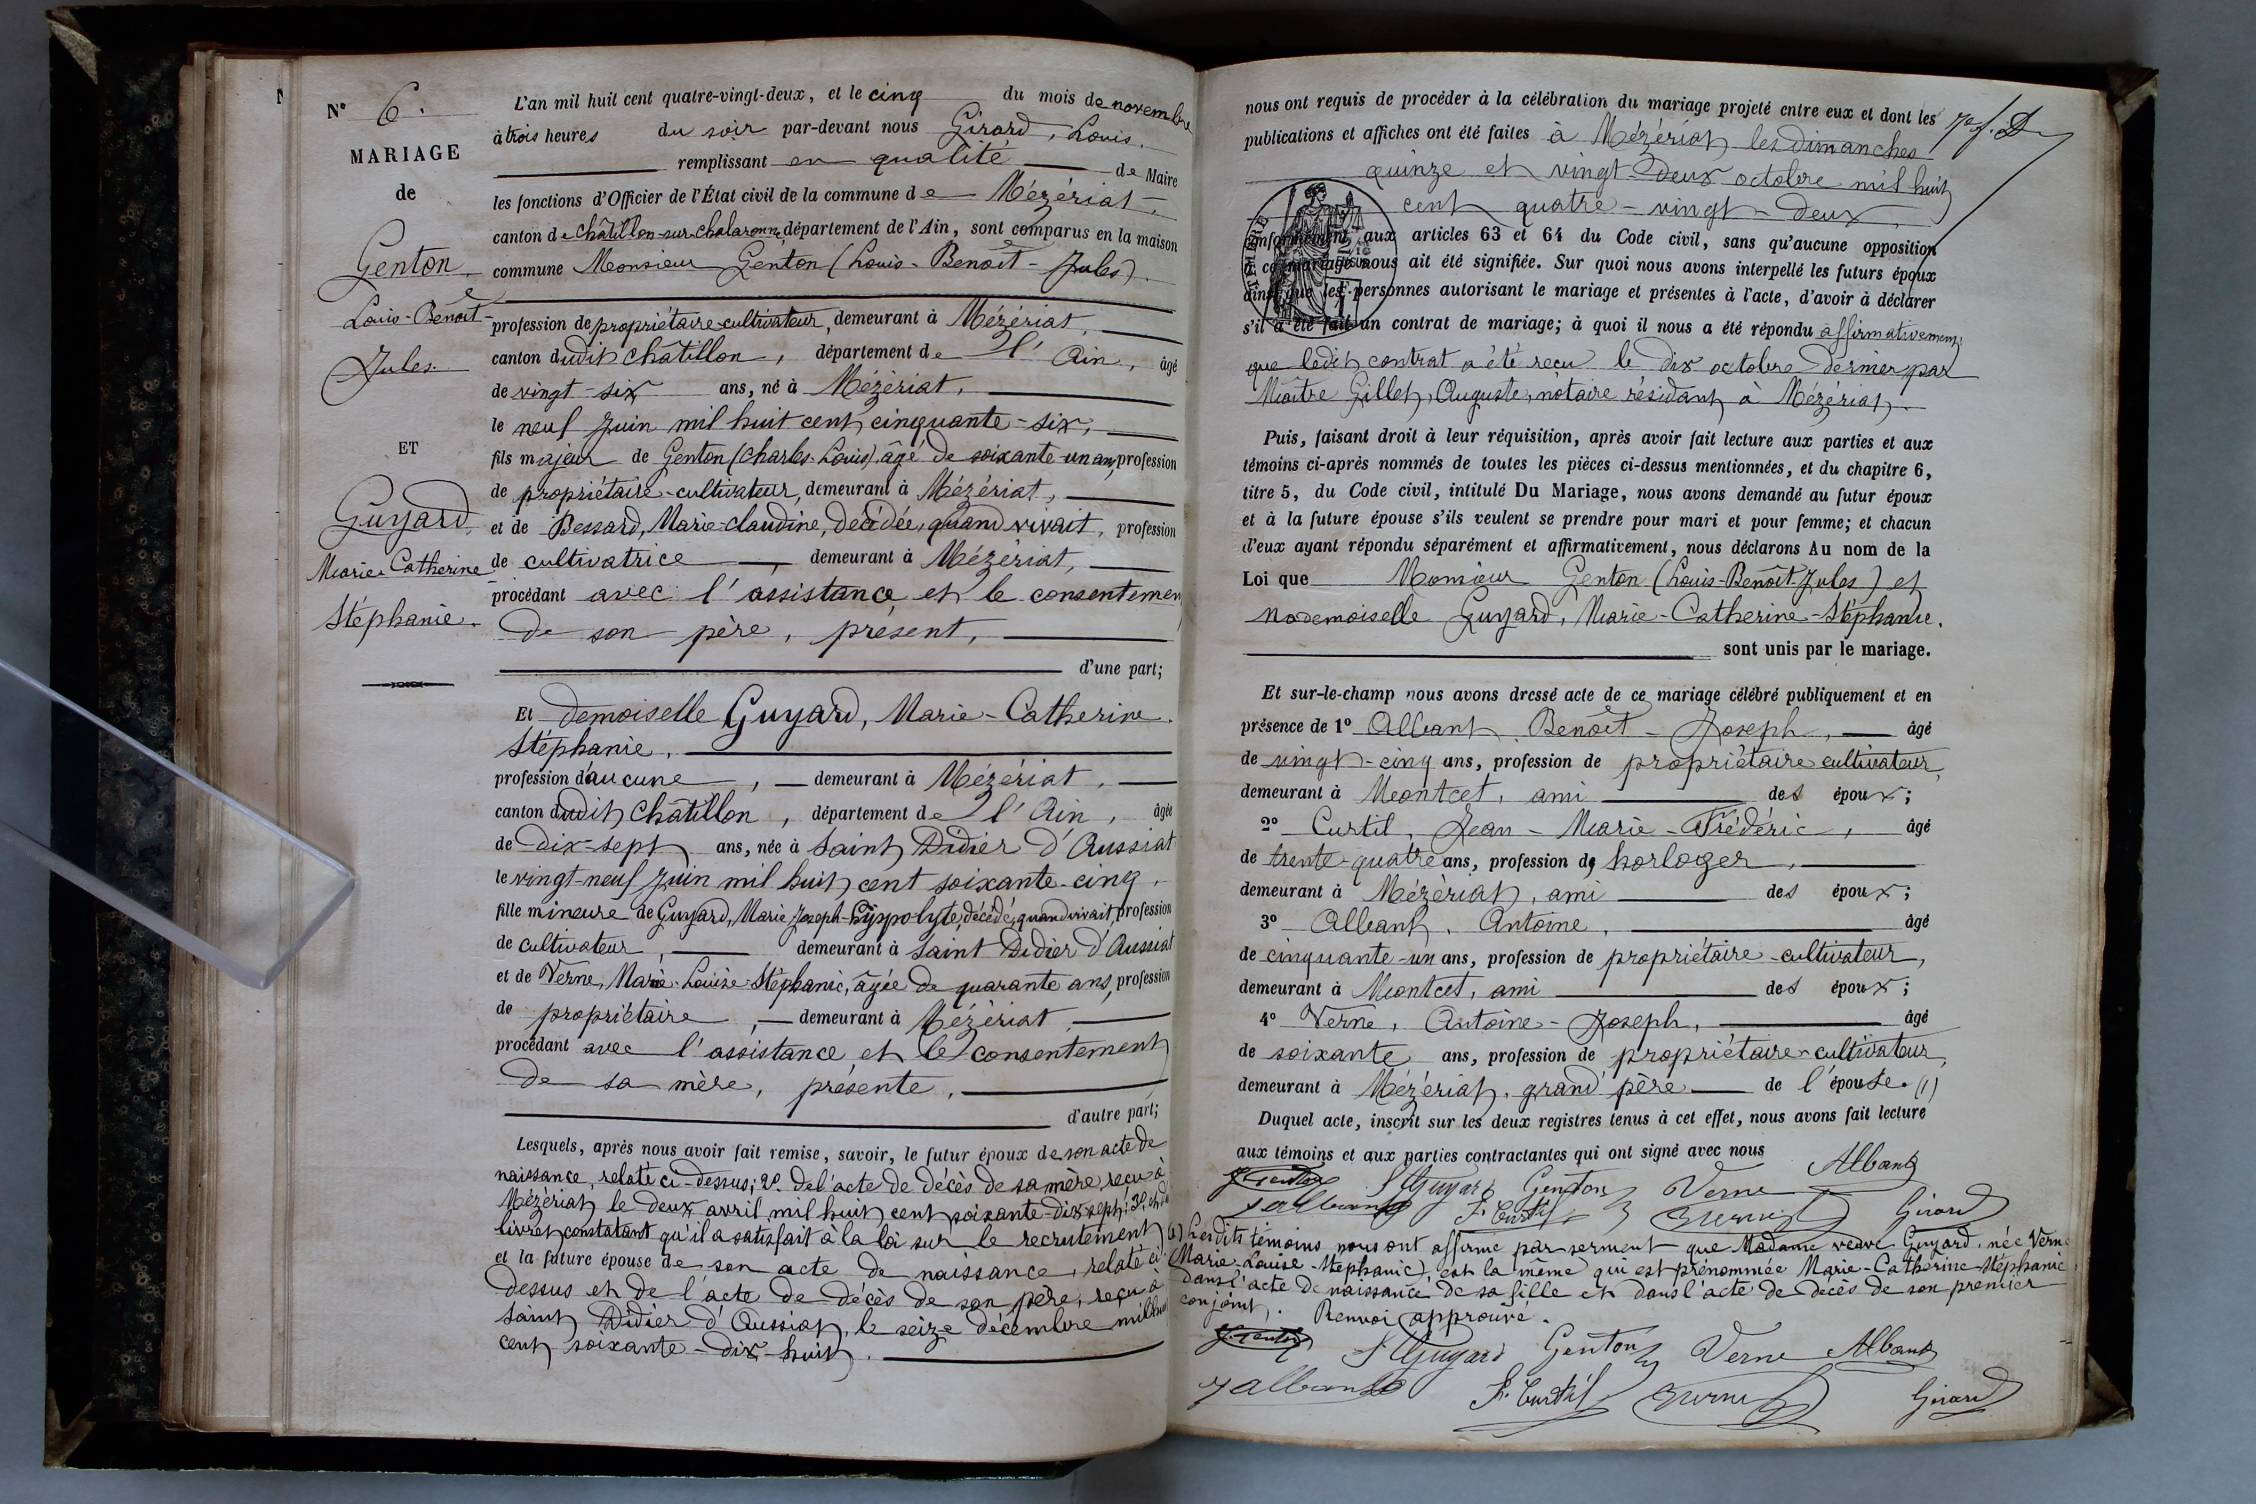 N° 6.
MARIAGE
de
Genton
Louis-Benoît-
Jules.
ET
Guyard,
Marie-Catherine
Stéphanie.
L'an mil huit cent quatre-vingt-deux, et le cinq du mois de novembre
à trois heures du soir par-devant nous Girard, Louis.
remplissant en qualité de Maire
les fonctions d'Officier de l'État civil de la commune de Mézériat,
canton de Châtillon-sur-Chalaronne, département de l'Ain, sont comparus en la maison
commune Monsieur Genton (Louis-Benoît-Jules).
profession de propriétaire-cultivateur, demeurant à Mézériat,
canton dudit Châtillon, département de l'Ain, âgé
de vingt-six ans, né à Mézériat,
le neuf Juin mil huit cent cinquante-six,
fils majeur de Genton (Charles-Louis), âgé de soixante-un ans, profession
de propriétaire-cultivateur, demeurant à Mézériat,
et de Bessard, Marie-Claudine, décédée, quand vivait, profession
de cultivatrice, demeurant à Mézériat,
procédant avec l'assistance et le consentement
de son père, présent,
d'une part;
Et demoiselle Guyard, Marie-Catherine.
Stéphanie,
profession d'aucune, demeurant à Mézériat,
canton dudit Châtillon, département de l'Ain, âgée
de dix-sept ans, née à Saint Didier d'Aussiat
le vingt-neuf Juin mil huit cent soixante-cinq,
fille mineure de Guyard, Marie Joseph-Hippolyte, décédé, quand vivait, profession
de cultivateur, demeurant à Saint Didier d'Aussiat
et de Verne, Marie-Louise-Stéphanie, âgée de quarante ans, profession
de propriétaire, demeurant à Mézériat,
procédant avec l'assistance et le consentement
de sa mère, présente,
d'autre part;
Lesquels, après nous avoir fait remise, savoir, le futur époux de son acte de
naissance, relaté ci-dessus; 2°. de l'acte de décès de sa mère, reçu à
Mézériat le deux avril mil huit cent soixante-dix-sept; 3°. et du
livret constatant qu'il a satisfait à la loi sur le recrutement
et la future épouse de son acte de naissance, relaté ci-
dessus et de l'acte de décès de son père, reçu à
Saint Didier d'Aussiat, le seize décembre mil huit
cent soixante-dix-huit.
nous ont requis de procéder à la célébration du mariage projeté entre eux et dont les
publications et affiches ont été faites à Mézériat, les dimanches
quinze et vingt-deux octobre mil huit
cent quatre-vingt-deux,
TIMBRE
conformément aux articles 63 et 64 du Code civil, sans qu'aucune opposition
à ce mariage nous ait été signifiée. Sur quoi nous avons interpellé les futurs époux
ainsi que les personnes autorisant le mariage et présentes à l'acte, d'avoir à déclarer
s'il a été fait un contrat de mariage; à quoi il nous a été répondu affirmativement,
que ledit contrat a été reçu le dix octobre dernier par
Maître Gillet, Auguste, notaire résidant à Mézériat.
Puis, faisant droit à leur réquisition, après avoir fait lecture aux parties et aux
témoins ci-après nommés de toutes les pièces ci-dessus mentionnées, et du chapitre 6,
titre 5, du Code civil, intitulé Du Mariage, nous avons demandé au futur époux
et à la future épouse s'ils veulent se prendre pour mari et pour femme; et chacun
d'eux ayant répondu séparément et affirmativement, nous déclarons Au nom de la
Loi que Monsieur Genton (Louis-Benoît-Jules) et
Mademoiselle Guyard, Marie-Catherine-Stéphanie.
sont unis par le mariage.
Et sur-le-champ nous avons dressé acte de ce mariage célébré publiquement et en
présence de 1° Albant, Benoît-Joseph, âgé
de vingt-cinq ans, profession de propriétaire cultivateur,
demeurant à Montcet, ami des époux;
2° Curtil, Jean-Marie-Frédéric, âgé
de trente-quatre ans, profession de horloger,
demeurant à Mézériat, ami des époux;
3° Albant, Antoine, âgé
de cinquante-un ans, profession de propriétaire-cultivateur,
demeurant à Montcet, ami des époux;
4° Verne, Antoine-Joseph, âgé
de soixante ans, profession de propriétaire-cultivateur,
demeurant à Mézériat, grand'père de l'épouse. (1)
Duquel acte, inscrit sur les deux registres tenus à cet effet, nous avons fait lecture
aux témoins et aux parties contractantes qui ont signé avec nous
J. Genton S Guyard Genton Verne Albant
J albant F. Curtil Verne Girard
(1) Lesdits témoins nous ont affirmé par serment que Madame veuve Guyard, née Verne
(Marie-Louise-Stéphanie), est la même qui est prénommée Marie-Catherine-Stéphanie
dans l'acte de naissance de sa fille et dans l'acte de décès de son premier
conjoint. Renvoi approuvé.
J. Genton S Guyard Genton Verne Albant
J albant F. Curtil Verne Girard